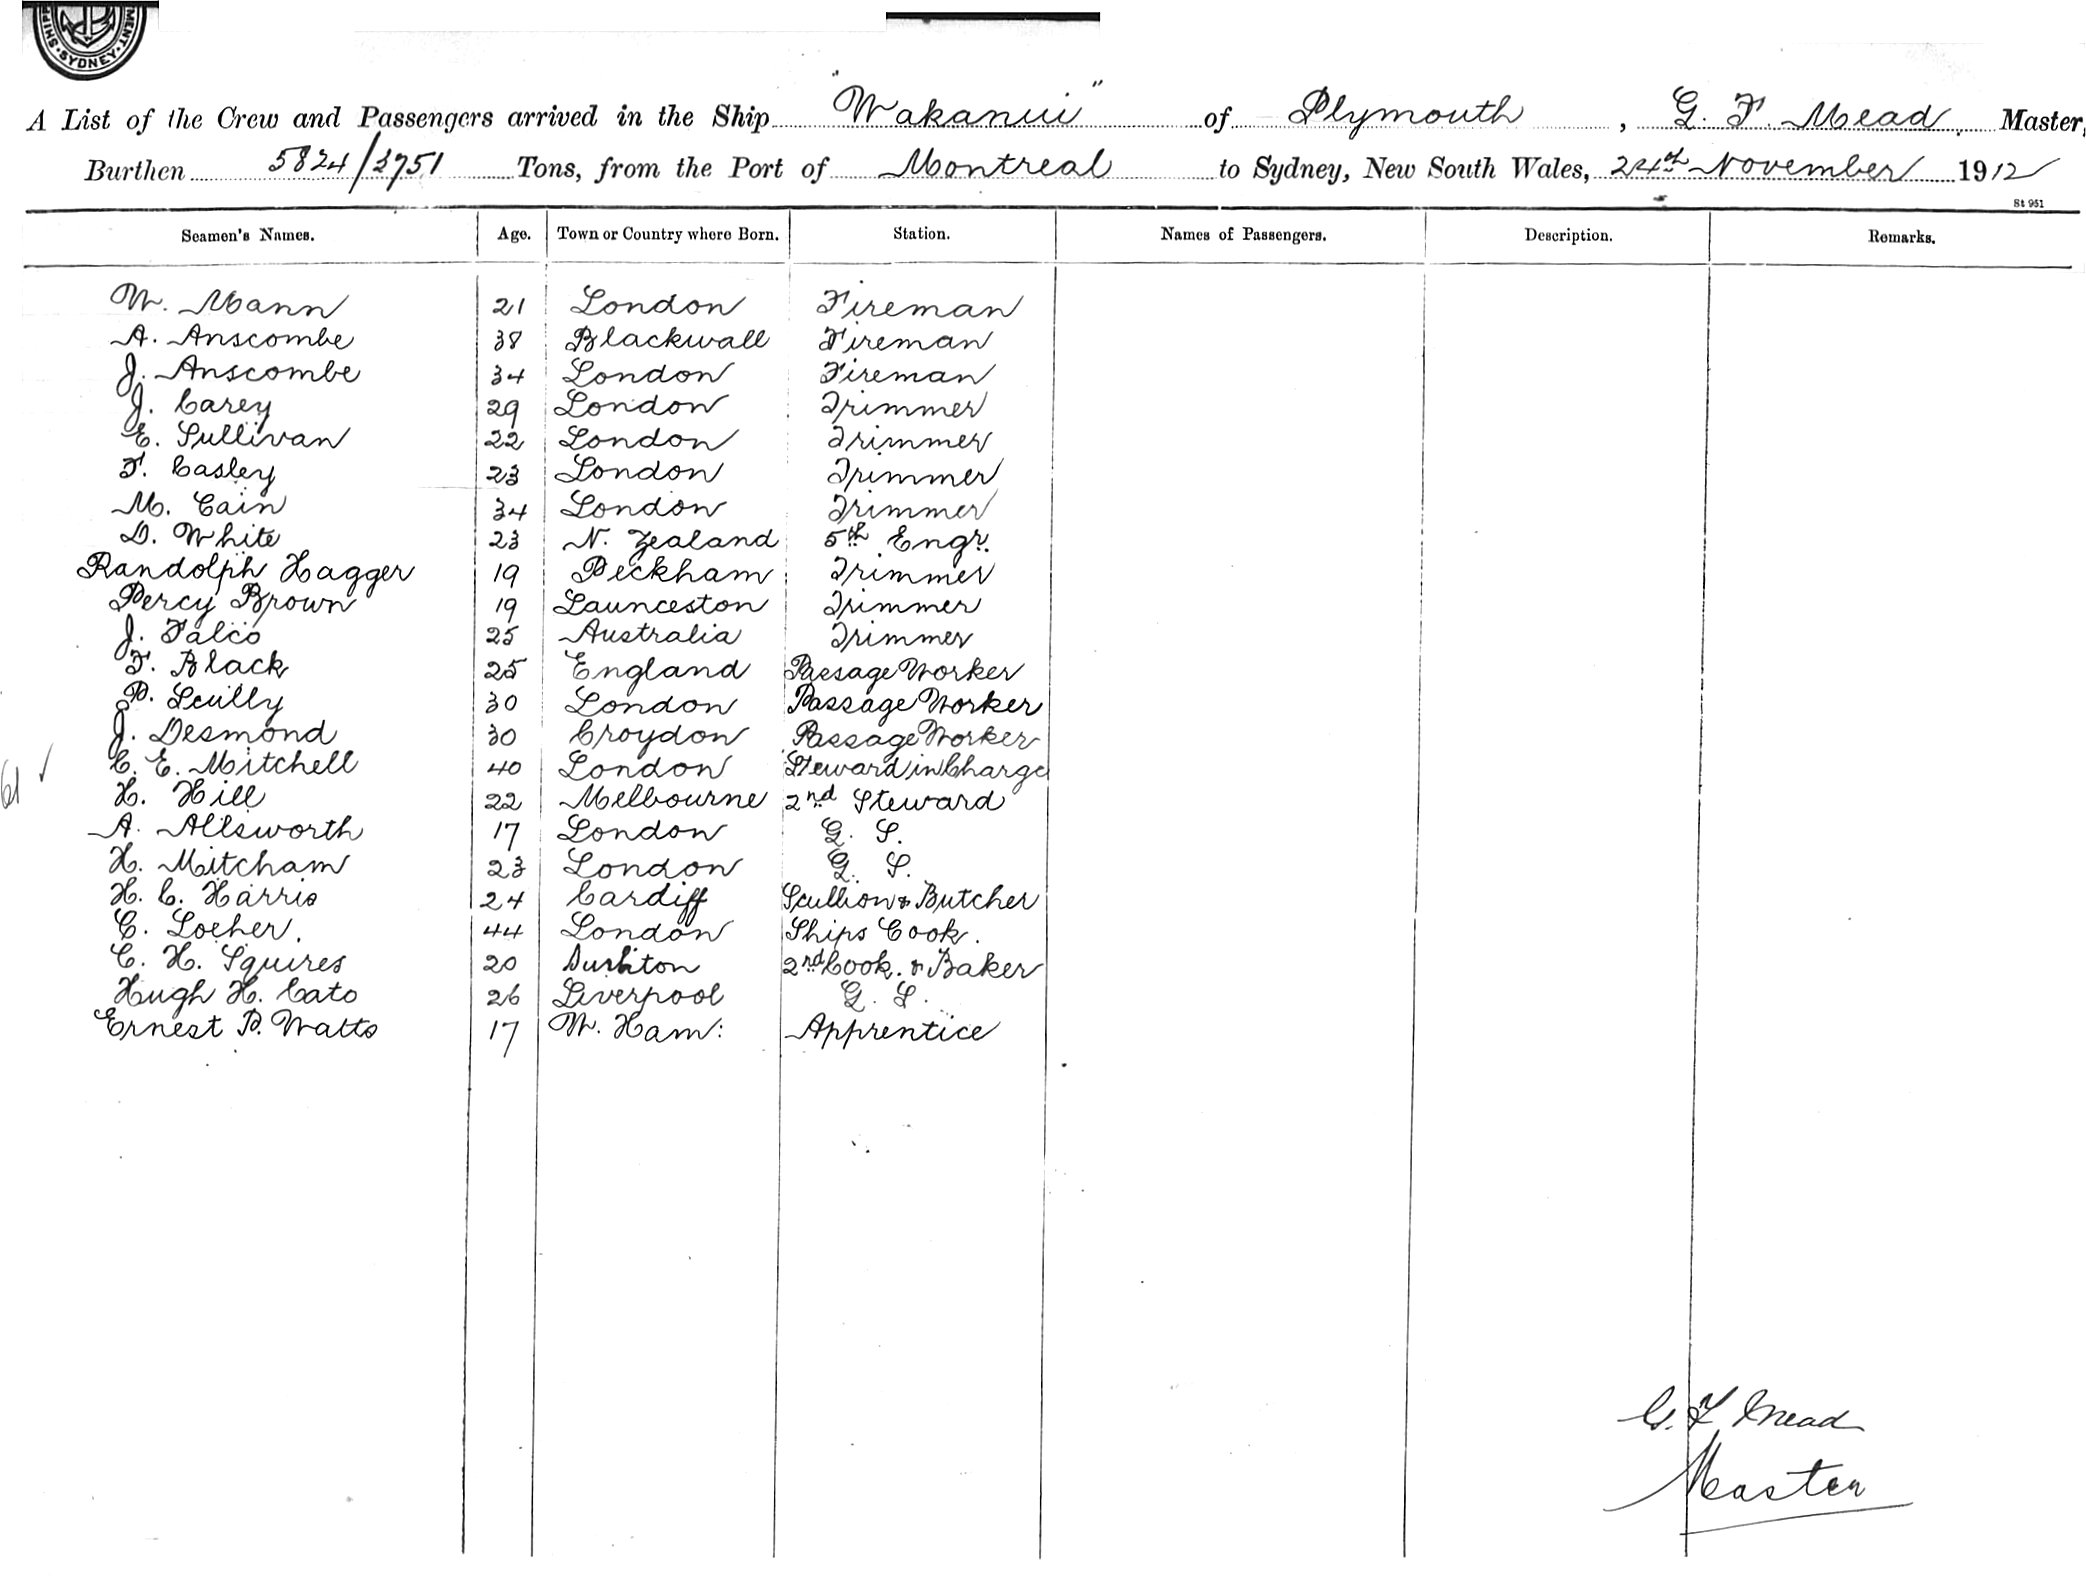 MENT · SYDNEY · SHIP
A List of the Crew and Passengers arrived in the Ship "Wakanui" of Plymouth, G. F. Mead, Master,
Burthen 5824/3751 Tons, from the Port of Montreal to Sydney, New South Wales, 24th November 1912
St 951
Seamen's Names. Age. Town or Country where Born. Station. Names of Passengers. Description. Remarks.
W. Mann 21 London Fireman
A. Anscombe 38 Blackwall Fireman
J. Anscombe 34 London Fireman
J. Carey 29 London Trimmer
E. Sullivan 22 London Trimmer
F. Casley 23 London Trimmer
M. Cain 34 London Trimmer
D. White 23 N. Zealand 5th Engr.
Randolph Hagger 19 Peckham Trimmer
Percy Brown 19 Launceston Trimmer
J. Falco 25 Australia Trimmer
F. Black 25 England Passage Worker
P. Scully 30 London Passage Worker
J. Desmond 30 Croydon Passage Worker
C. E. Mitchell 40 London Steward in Charge
61 ✓
H. Hill 22 Melbourne 2nd Steward
A. Allsworth 17 London G. S.
H. Mitcham 23 London G. S.
H. C. Harris 24 Cardiff Scullion & Butcher
C. Locher. 44 London Ships Cook.
C. H. Squires 20 Surbiton 2nd Cook. & Baker
Hugh H. Cato 26 Liverpool G. S.
Ernest P. Watts 17 W. Ham: Apprentice
G. F. Mead
Master